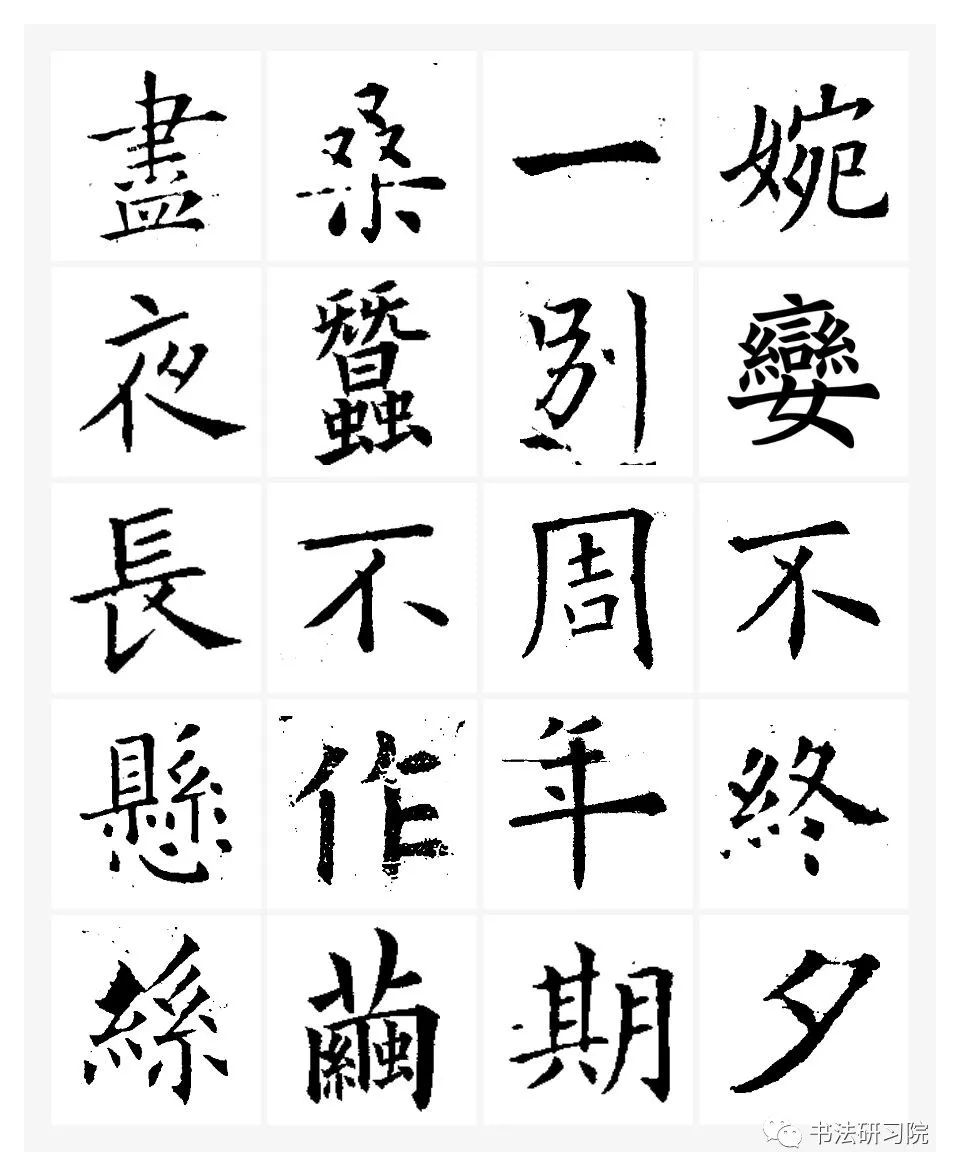 婉孌不終夕
一別周年期
桑蠶不作繭
晝夜長懸絲
书法研习院